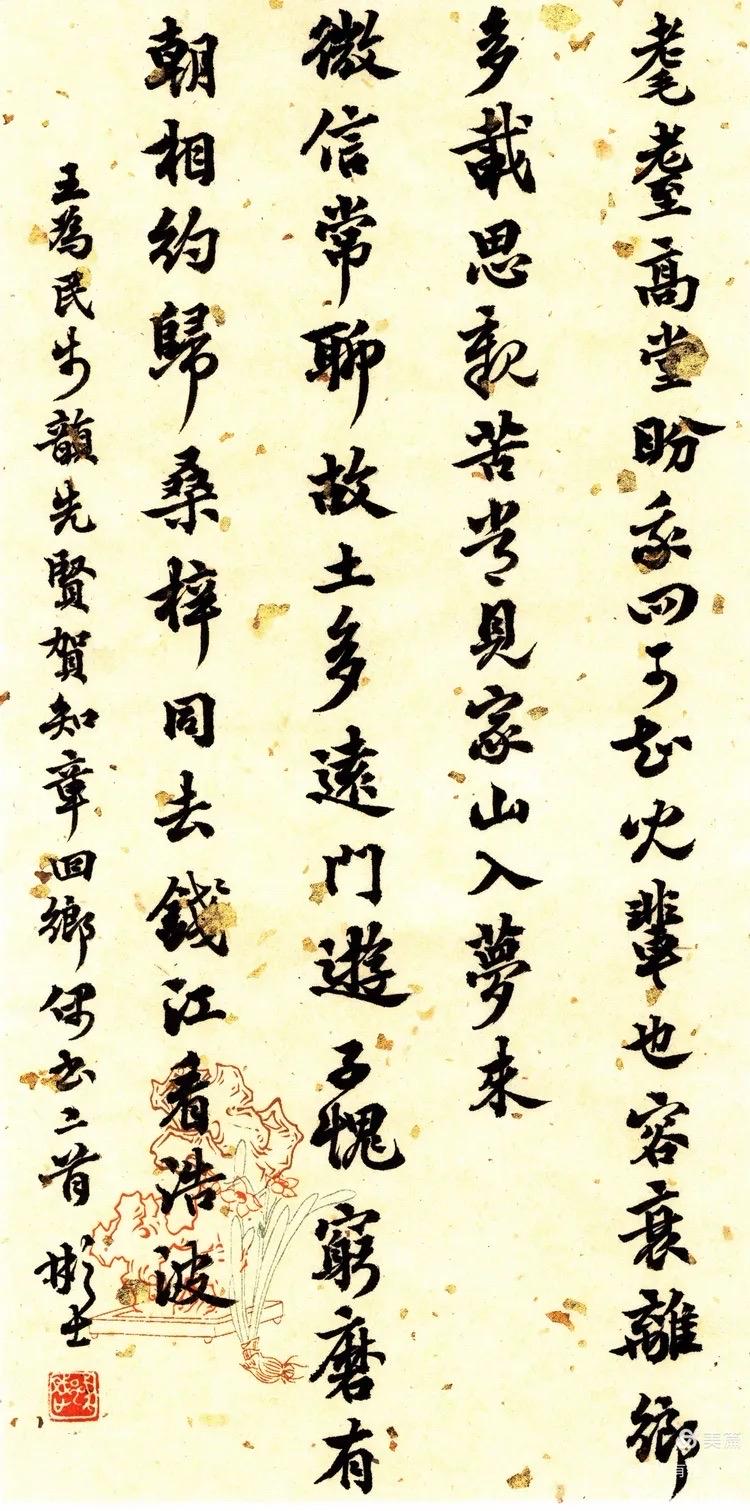 耄耋高堂盼我回可知兒輩也容衰離鄉
多載思親苦常見家山入夢來
微信常聊故土多遠門遊子愧窮磨有
朝相約歸桑梓同去錢江看浩波
王為民步韻先賢賀知章回鄉偶書二首 彬士
美篇